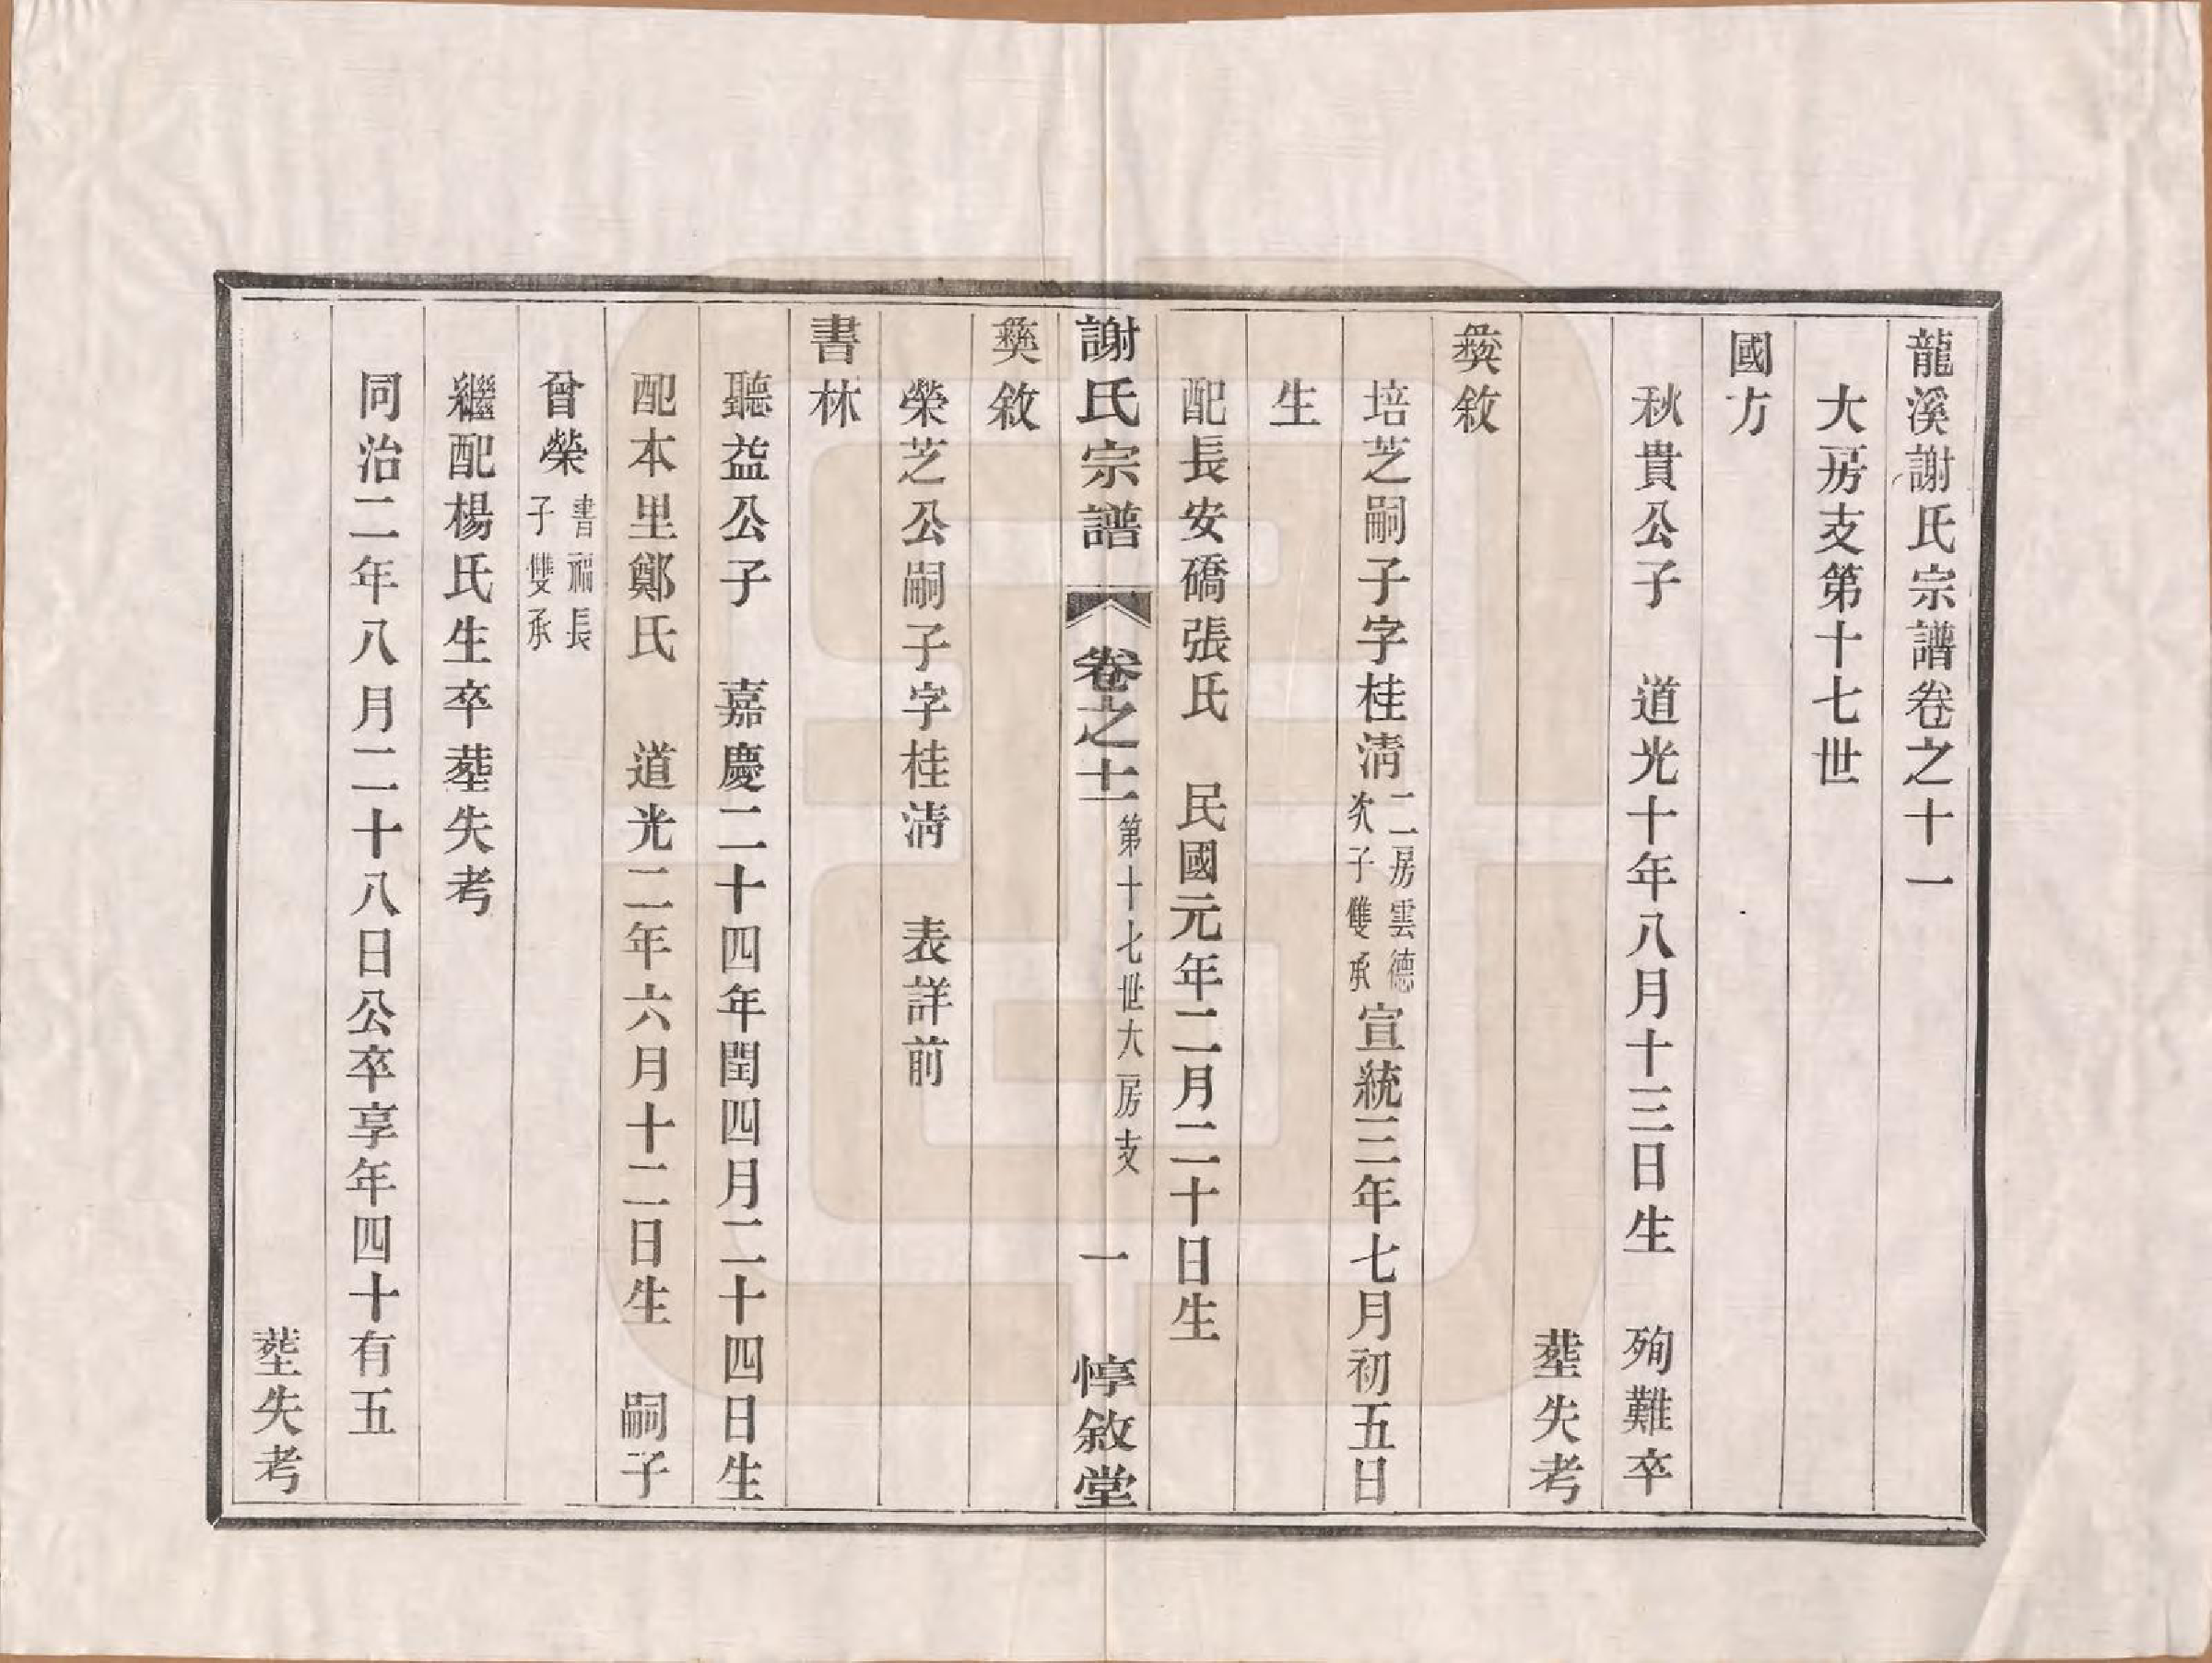 龍溪謝氏宗譜卷之十一
大房支第十七世
國方
秋貴公子　道光十年八月十三日生　殉難卒
塟失考
彝敘
培芝嗣子字桂清二房雲德次子雙承宣統三年七月初五日
生
配長安礄張氏　民國元年二月二十日生
謝氏宗譜　卷之十一　第十七世大房支　一　惇敘堂
彝敘
榮芝公嗣子字桂清　表詳前
書林
聽益公子　嘉慶二十四年閏四月二十四日生
配本里鄭氏　道光二年六月十二日生　嗣子
曾榮書福長子雙承
繼配楊氏生卒塟失考
同治二年八月二十八日公卒享年四十有五
塟失考